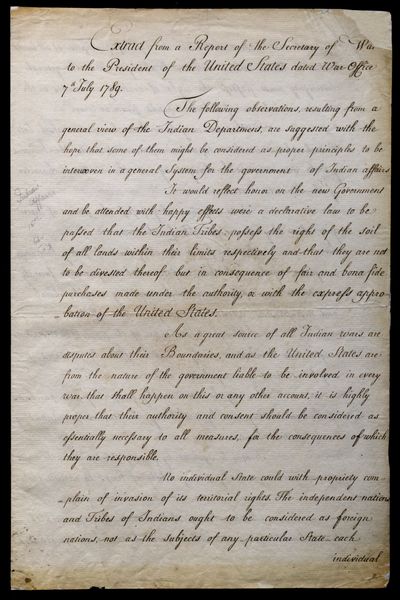 Extract from a Report of the Secretary of War
to the President of the United States dated War Office
7th July 1789.
The following observations, resulting from a
general view of the Indian Department, are suggested with the
hope that some of them might be considered as proper principles to be
interwoven in a general System for the government of Indian affairs
It would reflect honor on the new Government
and be attended with happy effects were a declarative law to be
passed that the Indian Tribes possess the right of the soil
of all lands within their limits respectively and that they are not
to be divested thereof but in consequence of fair and bona fide
purchases made under the authority, or with the express appro-
-bation of the United States.
As a great source of all Indian wars are
disputes about their Boundaries, and as the United States are
from the nature of the government liable to be involved in every
war that shall happen on this or any other account, it is highly
proper that their authority and consent should be considered as
essentially necessary to all measures, for the consequences of which
they are responsible.
No individual State could with propriety com-
-plain of invasion of its territorial rights. The independent nations
and Tribes of Indians ought to be considered as foreign
nations, not as the subjects of any particular State each
individual